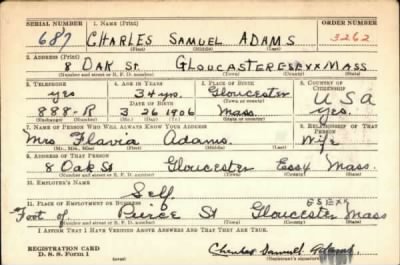 SERIAL NUMBER 1. NAME (Print) ORDER NUMBER
687 CHARLES SAMUEL ADAMS 3262
(First) (Middle) (Last)
2. ADDRESS (Print)
8 OAK St. GLOUCESTER ESSEX MASS
(Number and street or R. F. D. number) (Town) (County) (State)
3. TELEPHONE 4. AGE IN YEARS 5. PLACE OF BIRTH 6. COUNTRY OF CITIZENSHIP
yes 34 yrs. Gloucester USA
DATE OF BIRTH (Town or county)
888-R 3 26 1906 Mass. yes.
(Exchange) (Number) (Mo.) (Day) (Yr.) (State or country)
7. NAME OF PERSON WHO WILL ALWAYS KNOW YOUR ADDRESS 8. RELATIONSHIP OF THAT PERSON
Mrs Flavia Adams. Wife
(Mr., Mrs., Miss) (First) (Middle) (Last)
9. ADDRESS OF THAT PERSON
8 Oak St Gloucester Essex Mass.
(Number and street or R. F. D. number) (Town) (County) (State)
10. EMPLOYER'S NAME
Self.
11. PLACE OF EMPLOYMENT OR BUSINESS ESSEX
Foot of Pierce St Gloucester Mass
(Number and street or R. F. D. number) (Town) (County) (State)
I AFFIRM THAT I HAVE VERIFIED ABOVE ANSWERS AND THAT THEY ARE TRUE.
REGISTRATION CARD
D. S. S. Form 1 Charles Samuel Adams
(Registrant's signature)